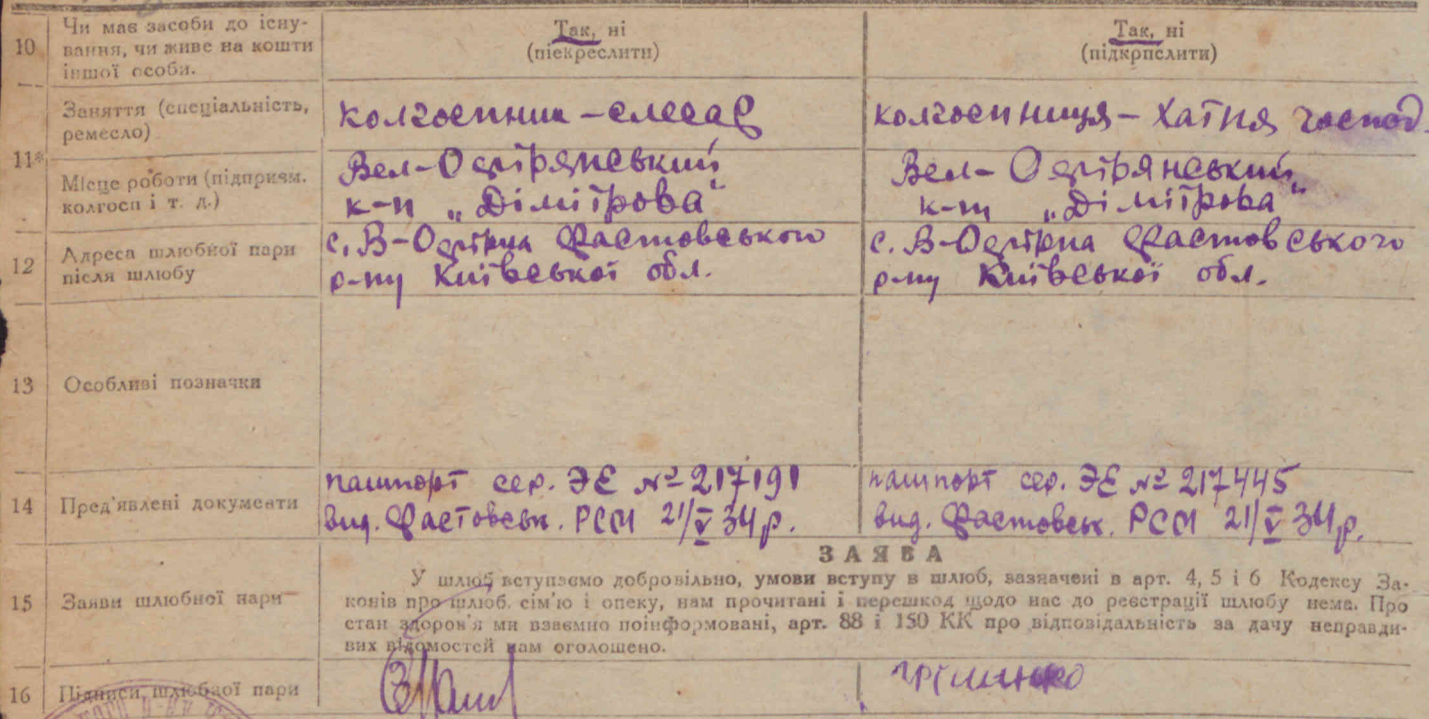 10
Чи має засоби до існу-
вання, чи живе на кошти
іншої особи.
Так, ні
(піекреслити)
Так, ні
(підкрпслити)
11*
Заняття (спеціальність,
ремесло)
колгоспник – слесар
колгоспниця – Хатня господ.
Місце роботи (підприєм.
колгосп і т. д.)
Вел-Офірянський
к-п „Дімітрова"
Вел-Офірянський
к-п „Дімітрова"
12
Адреса шлюбної пари
після шлюбу
с. В-Офірна Фастовського
р-ну Київської обл.
с. В-Офірна Фастовського
р-ну Київської обл.
13
Особливі позначки
14
Пред'явлені документи
пашпорт сер. ЭЕ № 217191
вид. Фастовськ. РСМ 21/V 34 р.
пашпорт сер. ЭЕ № 217445
вид. Фастовськ. РСМ 21/V 34 р.
15
Заяви шлюбної пари
ЗАЯВА
У шлюб вступаємо добровільно, умови вступу в шлюб, зазначені в арт. 4, 5 і 6 Кодексу За-
конів про шлюб. сім'ю і опеку, нам прочитані і перешкод щодо нас до реєстрації шлюбу нема. Про
стан здоров'я ми взаємно поінформовані, арт. 88 і 150 КК про відповідальність за дачу неправди-
вих відомостей нам оголошено.
16
Підписи шлюбної пари